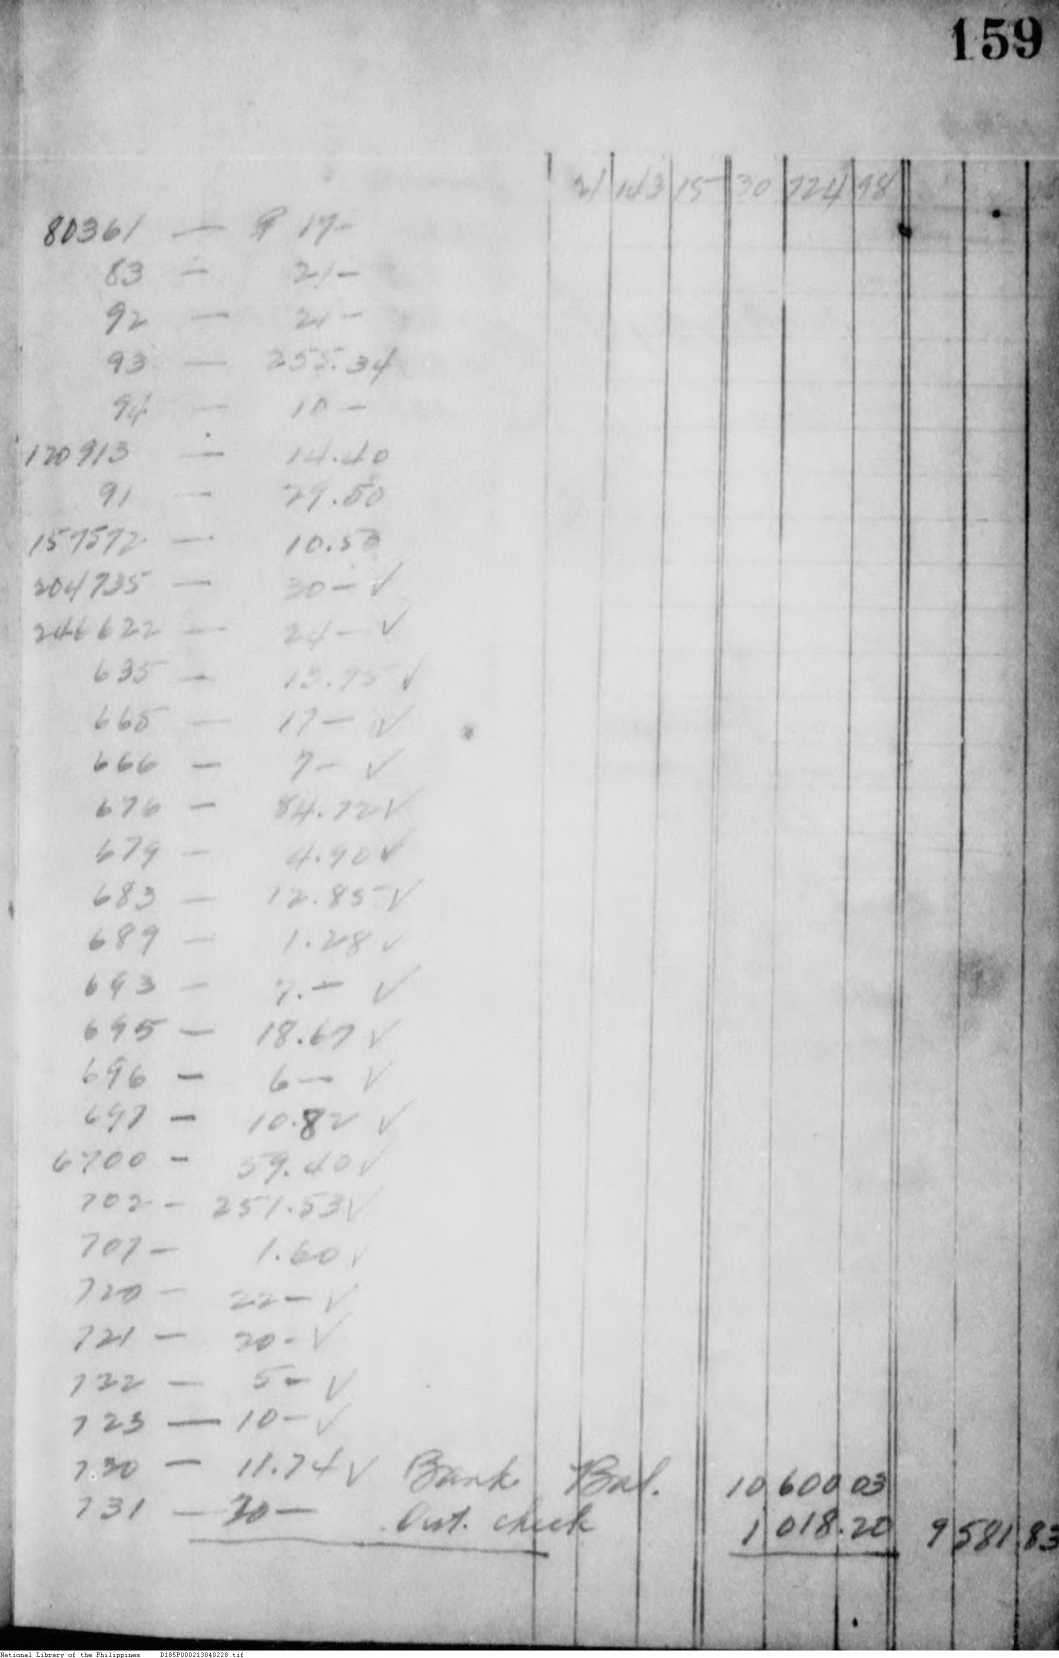 159
21 143 15 30 724 98
80361 — ₱ 17-
83 — 21-
92 — 21-
93 — 255.34
94 — 10-
120913 — 14.40
91 — 29.50
157572 — 10.50
204735 — 30- ✓
246622 — 24- ✓
635 — 13.95 ✓
665 — 17- ✓
666 — 7- ✓
676 — 84.72 ✓
679 — 4.90 ✓
683 — 12.85 ✓
689 — 1.28 ✓
693 — 7.- ✓
695 — 18.67 ✓
696 — 6- ✓
697 — 10.82 ✓
6700 — 59.40 ✓
702 — 251.53 ✓
707 — 1.60 ✓
720 — 22- ✓
721 — 20- ✓
722 — 5- ✓
723 — 10- ✓
730 — 11.74 ✓ Bank Bal. 10 600 03
731 — 30- Out. check 1 018.20 9 581 83
National Library of the Philippines D185P000213840228.tif